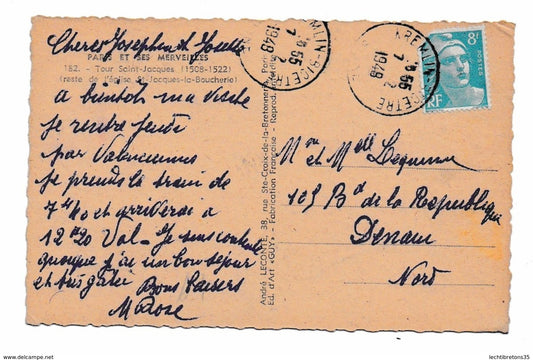 Cheres Josephen et Yvette
PARIS ET SES MERVEILLES
182. - Tour Saint-Jacques (1508-1522)
(reste de l'Église St-Jacques-la-Boucherie)
A bientôt ma visite
je rentre Jeudi
par Valenciennes
je prends le train de
7h40 et arriverai à
12h20 Val - Je suis contente
quoique j'ai un bon séjour
et très gâtée
Bons baisers
M Rose
André LECONTE, 38, rue Ste-Croix-de-la-Bretonnerie, Paris
Ed. d'Art «GUY» - Fabrication Française - Reprod. Interdite
KREMLIN-BICETRE
55
7 2
1949
KREMLIN-BICETRE
55
7 2
1949
8F
POSTES
RF
Mme et Melle Dequenne
105 Bd de la République
Denain
Nord
lechtbretons35